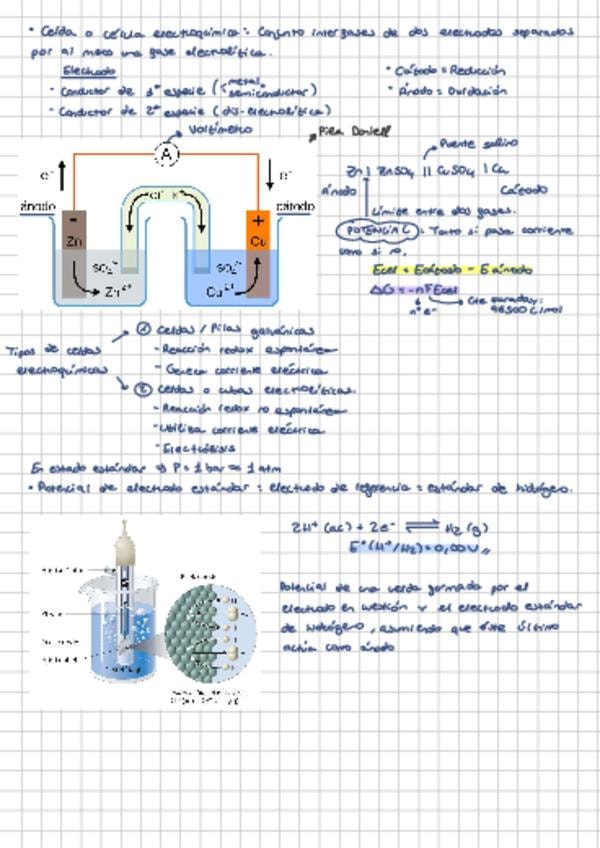 • Celda o célula electroquímica: Conjunto interfases de dos electrodos separados
por al menos una fase electrolítica.
Electrodo
- Conductor de 1ª especie (metal, semiconductor)
- Conductor de 2ª especie (dis. electrolítica)
• Cátodo = Reducción
• Ánodo = Oxidación
Voltímetro
Pila Daniell
A
e⁻
e⁻
ánodo
cátodo
-
+
Zn
Cu
Cl⁻ K⁺
SO₄²⁻
SO₄²⁻
Zn²⁺
Cu²⁺
Puente salino
Zn | ZnSO₄ || CuSO₄ | Cu
Ánodo
Cátodo
Límite entre dos fases.
POTENCIAL: Tanto si pasa corriente
como si no.
Ecel = Ecátodo - Eánodo
ΔG = -nFEcel
nº e⁻
Cte faraday:
96500 C/mol
Tipos de celdas
electroquímicas
① Celdas / Pilas galvánicas
- Reacción redox espontánea
- Genera corriente eléctrica
② Celdas o cubas electrolíticas.
- Reacción redox no espontánea
- Utiliza corriente eléctrica
- Electrólisis
En estado estándar → P = 1 bar ≈ 1 atm
• Potencial de electrodo estándar: electrodo de referencia = estándar de hidrógeno.
2H⁺ (ac) + 2e⁻ ⇌ H₂ (g)
E°(H⁺/H₂) = 0,00 V
Potencial de una celda formada por el
electrodo en cuestión y el electrodo estándar
de hidrógeno, asumiendo que éste último
actúa como ánodo